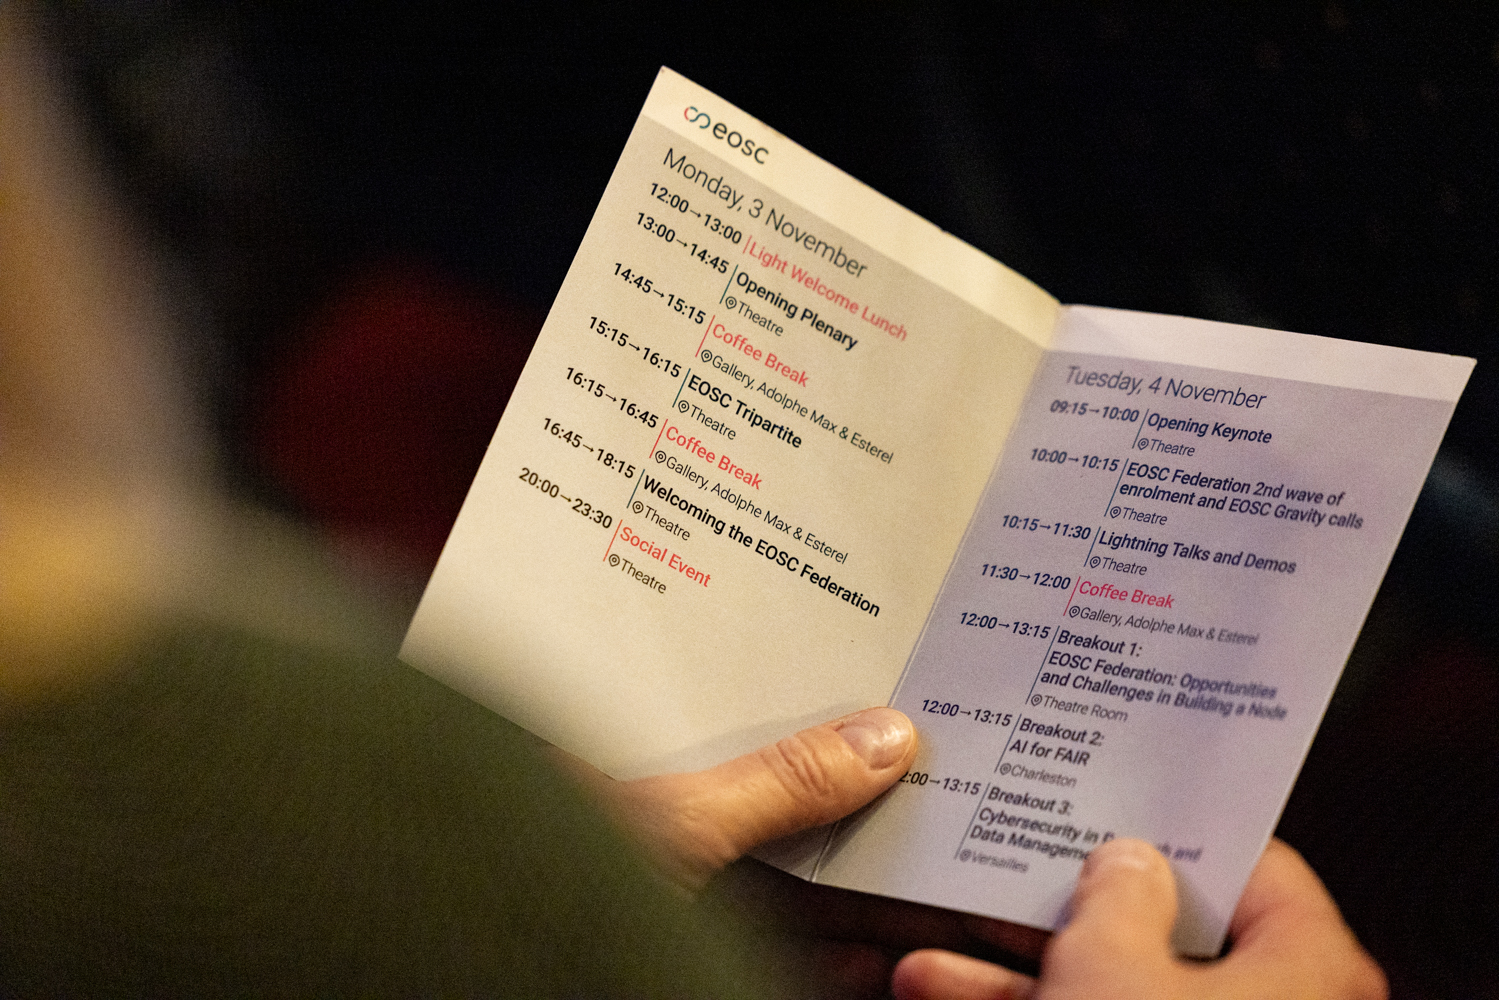 eosc
Monday, 3 November
12:00→13:00 Light Welcome Lunch
13:00→14:45 Opening Plenary
Theatre
14:45→15:15 Coffee Break
Gallery, Adolphe Max & Esterel
15:15→16:15 EOSC Tripartite
Theatre
16:15→16:45 Coffee Break
Gallery, Adolphe Max & Esterel
16:45→18:15 Welcoming the EOSC Federation
Theatre
20:00→23:30 Social Event
Theatre
Tuesday, 4 November
09:15→10:00 Opening Keynote
Theatre
10:00→10:15 EOSC Federation 2nd wave of
enrolment and EOSC Gravity calls
Theatre
10:15→11:30 Lightning Talks and Demos
Theatre
11:30→12:00 Coffee Break
Gallery, Adolphe Max & Esterel
12:00→13:15 Breakout 1:
EOSC Federation: Opportunities
and Challenges in Building a Node
Theatre Room
12:00→13:15 Breakout 2:
AI for FAIR
Charleston
2:00→13:15 Breakout 3:
Cybersecurity in and
Data
Versailles